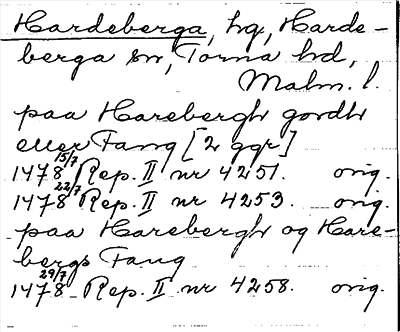 Hardeberga, hg, Harde-
berga sn, Torna hd,
Malm. l.
paa Harebergh gordh
eller Fang [2 ggr]
1478 15/7 Rep. II nr 4251. orig.
1478 22/7 Rep. II nr 4253. orig.
paa Harebergh og Hare-
bergs Fang
1478 29/7 Rep. II nr 4258. orig.